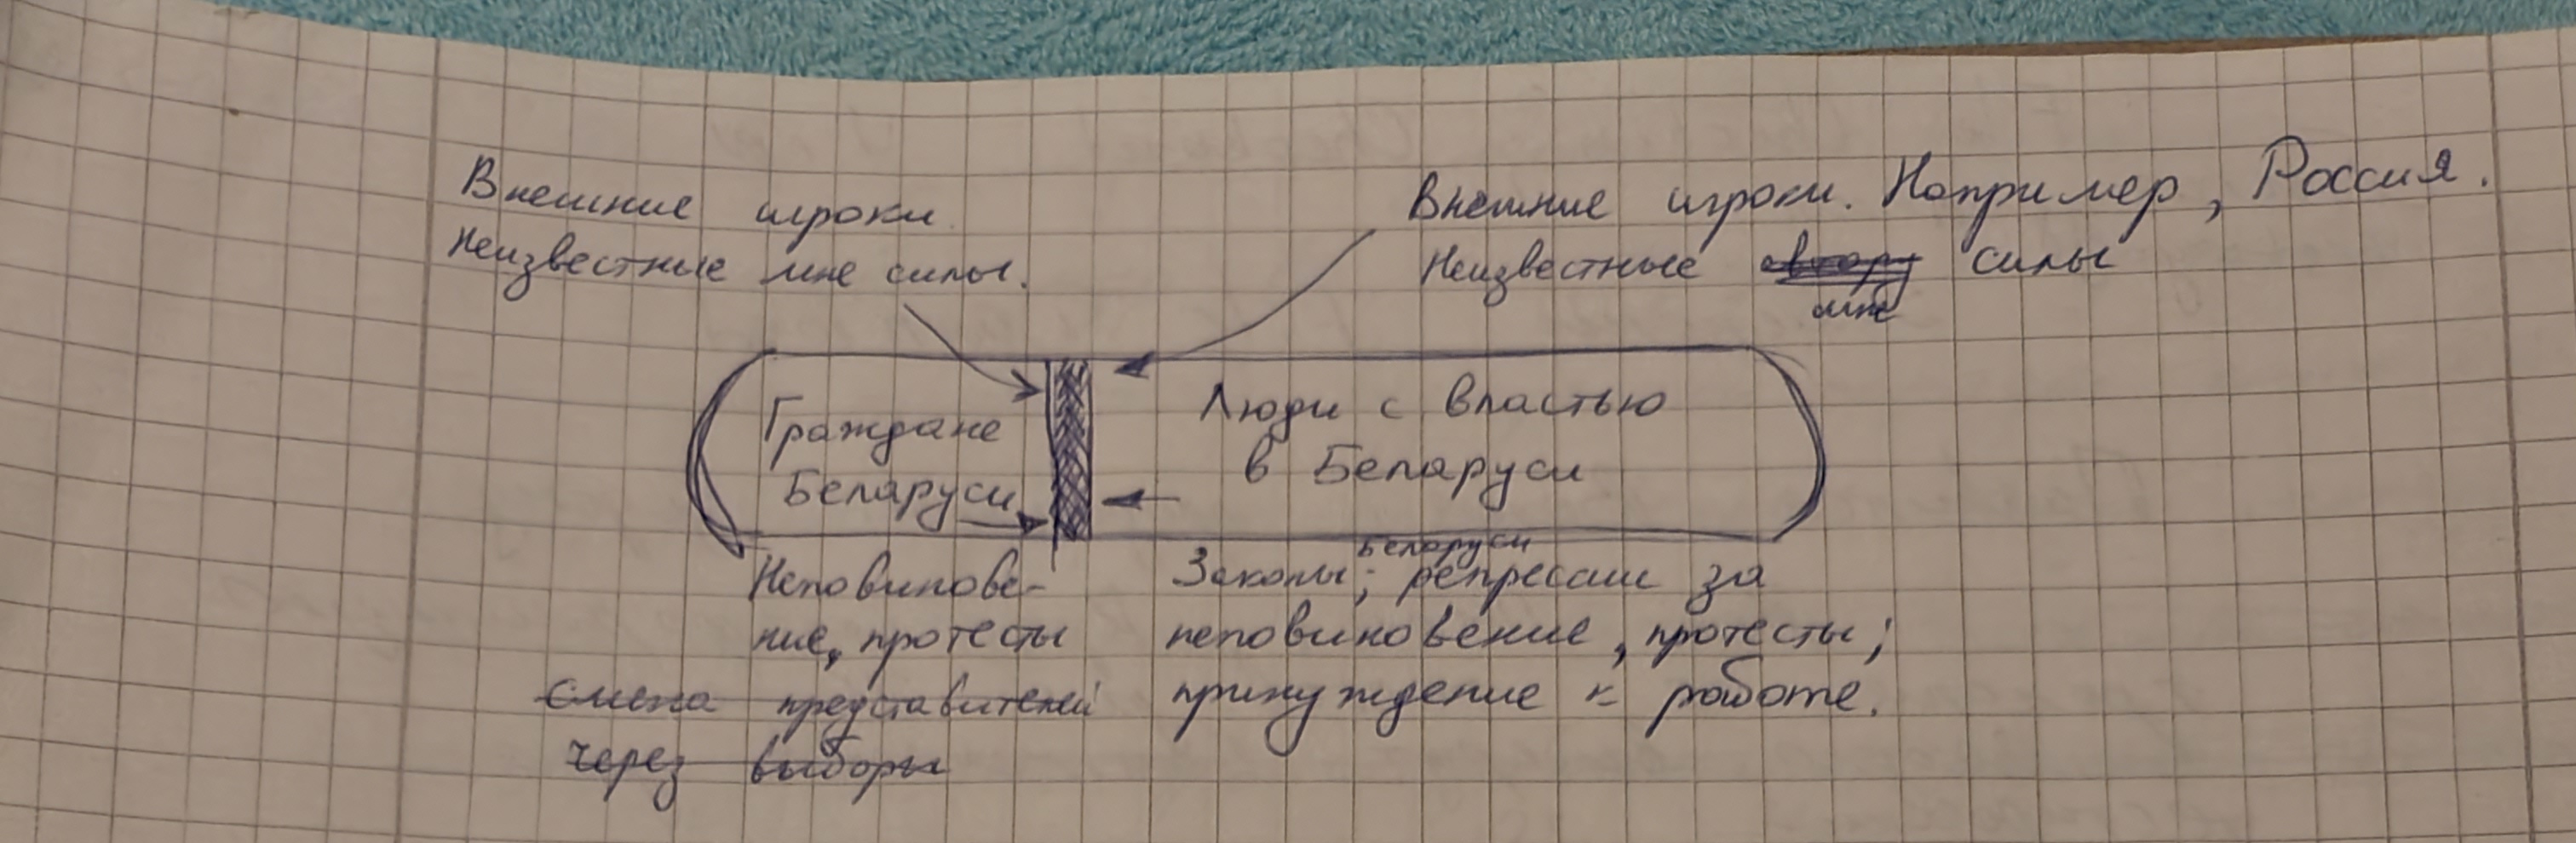 Внешние игроки.
Неизвестные мне силы.
Внешние игроки. Например, Россия.
Неизвестные автору силы
мне
Граждане
Беларуси
Люди с властью
в Беларуси
Неповинове-
ние, протесты
смена представителей
через выборы
Беларуси
Законы; репрессии за
неповиновение, протесты;
принуждение к работе.